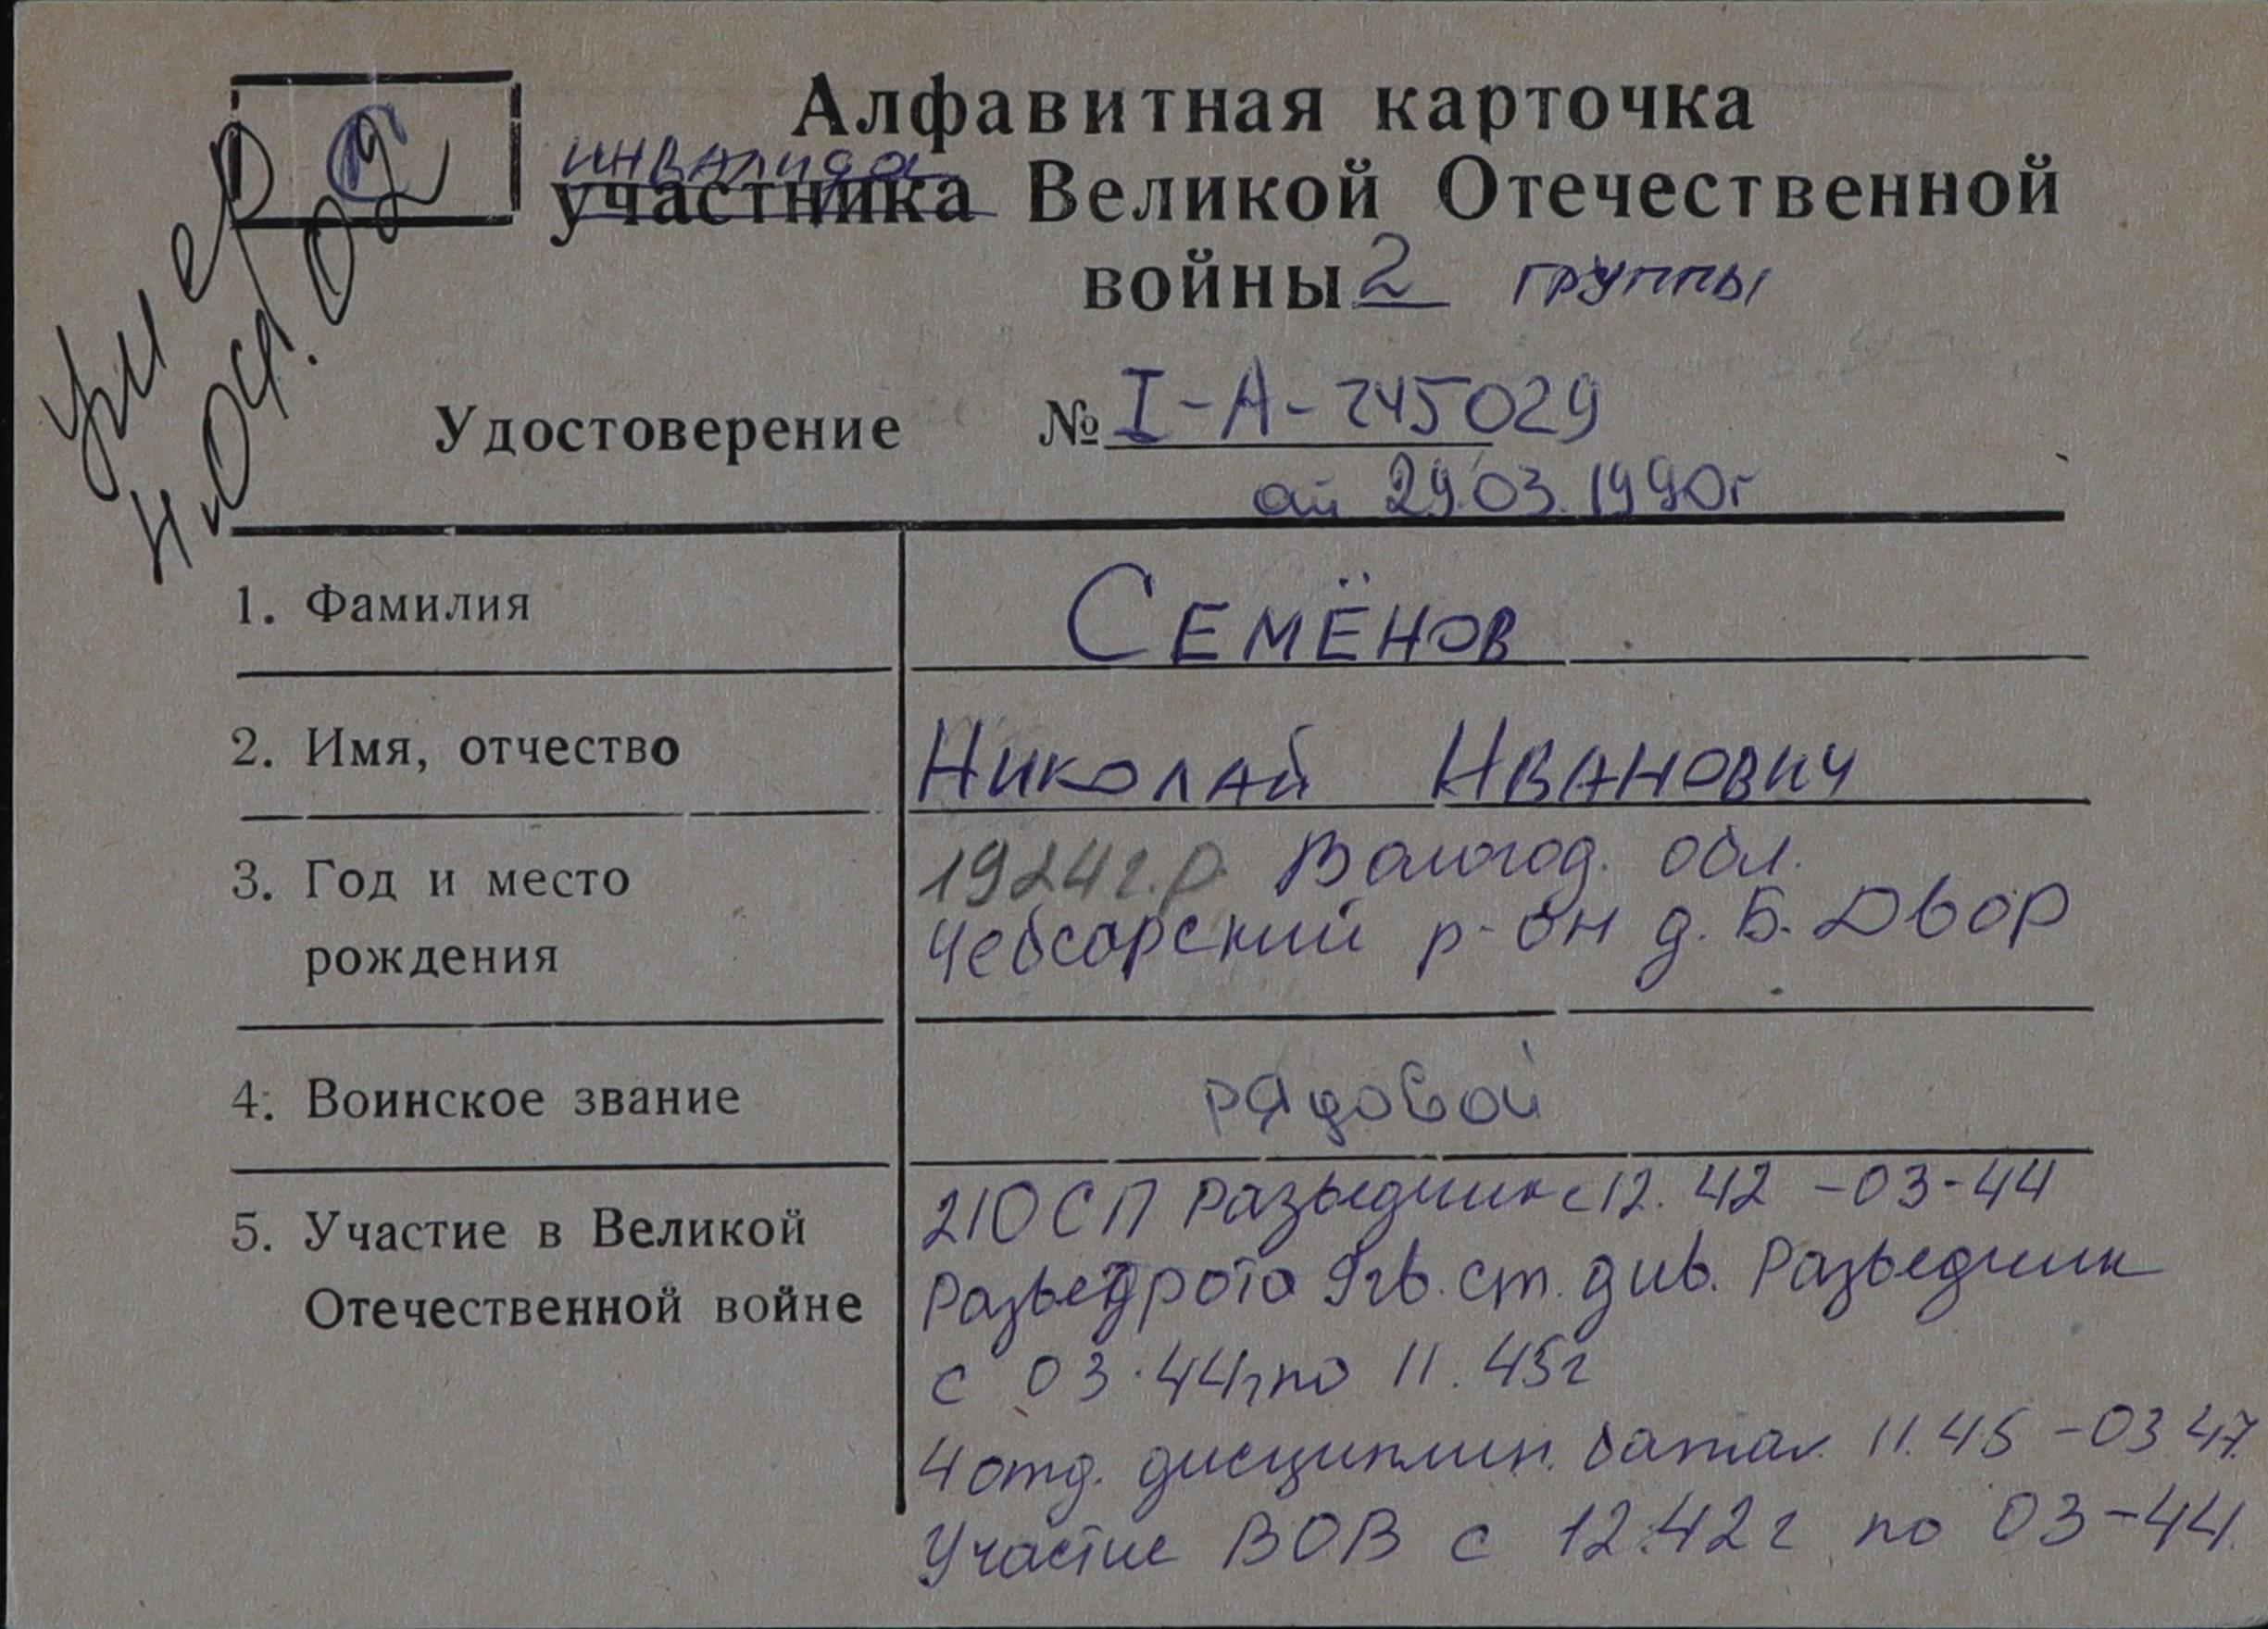 С
умер
н.04.02
Алфавитная карточка
инвалида
участника Великой Отечественной
войны 2 группы
Удостоверение № I-А-245029
от 29.03.1990г
1. Фамилия
Семёнов
2. Имя, отчество
Николай Иванович
3. Год и место
рождения
1924г.р. Волгод. обл.
Чебсарский р-он д. Б. Двор
4. Воинское звание
рядовой
5. Участие в Великой
Отечественной войне
210 СП разведчик с 12.42 -03-44
Разведрота 9гв. ст. див. Разведчик
с 03.44г по 11.45г
4 отд. дисциплин. батал. 11.45 -03 47.
Участие ВОВ с 12.42г по 03-44.